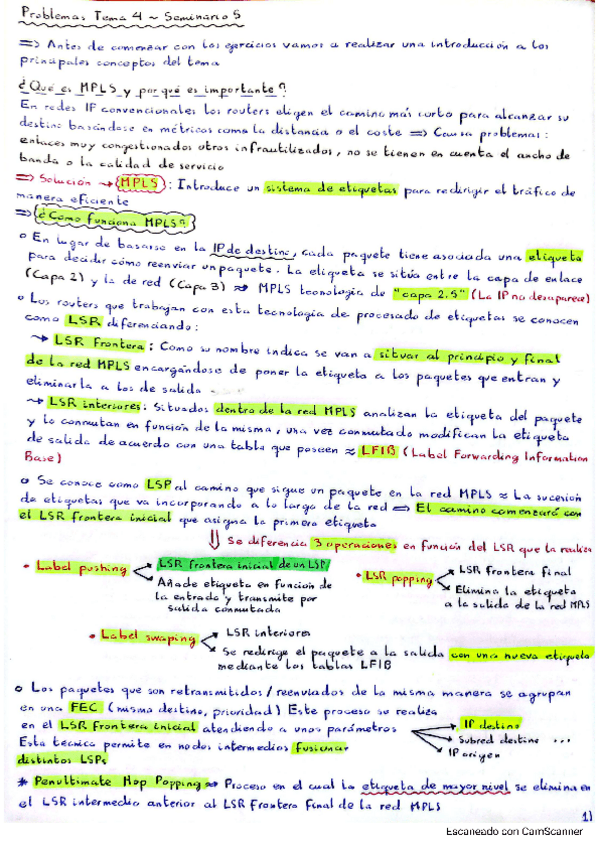 Problemas Tema 4 ~ Seminario 5
=> Antes de comenzar con los ejercicios vamos a realizar una introducción a los
principales conceptos del tema
¿Qué es MPLS y por qué es importante?
En redes IP convencionales los routers eligen el camino más corto para alcanzar su
destino basándose en métricas como la distancia o el coste => Causa problemas:
enlaces muy congestionados otros infrautilizados, no se tienen en cuenta el ancho de
banda o la calidad de servicio
=> Solución → MPLS : Introduce un sistema de etiquetas para redirigir el tráfico de
manera eficiente
=> ¿Como funciona MPLS?
o En lugar de basarse en la IP de destino, cada paquete tiene asociada una etiqueta
para decidir cómo reenviar un paquete. La etiqueta se sitúa entre la capa de enlace
(Capa 2) y la de red (Capa 3) ≈> MPLS tecnología de "capa 2.5" (La IP no desaparece)
o Los routers que trabajan con esta tecnología de procesado de etiquetas se conocen
como LSR diferenciando:
↝ LSR Frontera: Como su nombre indica se van a situar al principio y final
de la red MPLS encargándose de poner la etiqueta a los paquetes que entran y
eliminarla a los de salida -
↝ LSR interiores: Situados dentro de la red MPLS analizan la etiqueta del paquete
y lo conmutan en función de la misma, una vez conmutado modifican la etiqueta
de salida de acuerdo con una tabla que poseen ≈ LFIB (Label Forwarding Information
Base)
o Se conoce como LSP al camino que sigue un paquete en la red MPLS ≈ La sucesión
de etiquetas que va incorporando a lo largo de la red => El camino comenzará con
el LSR frontera inicial que asigna la primera etiqueta
⇓ Se diferencia 3 operaciones en función del LSR que la realiza
• Label pushing
LSR frontera inicial de un LSP
Añade etiqueta en función de
la entrada y transmite por
salida conmutada
• LSR popping
LSR frontera final
Elimina la etiqueta
a la salida de la red MPLS
• Label swaping
LSR interiores
Se redirige el paquete a la salida con una nueva etiqueta
mediante las tablas LFIB
o Los paquetes que son retransmitidos/reenviados de la misma manera se agrupan
en una FEC (mismo destino, prioridad) Este proceso se realiza
en el LSR frontera inicial atendiendo a unos parámetros
IP destino
Subred destino ...
IP origen
Esta técnica permite en nodos intermedios fusionar
distintos LSPs
* Penultimate Hop Popping ≈> Proceso en el cual la etiqueta de mayor nivel se elimina en
el LSR intermedio anterior al LSR frontera final de la red MPLS
1)
Escaneado con CamScanner